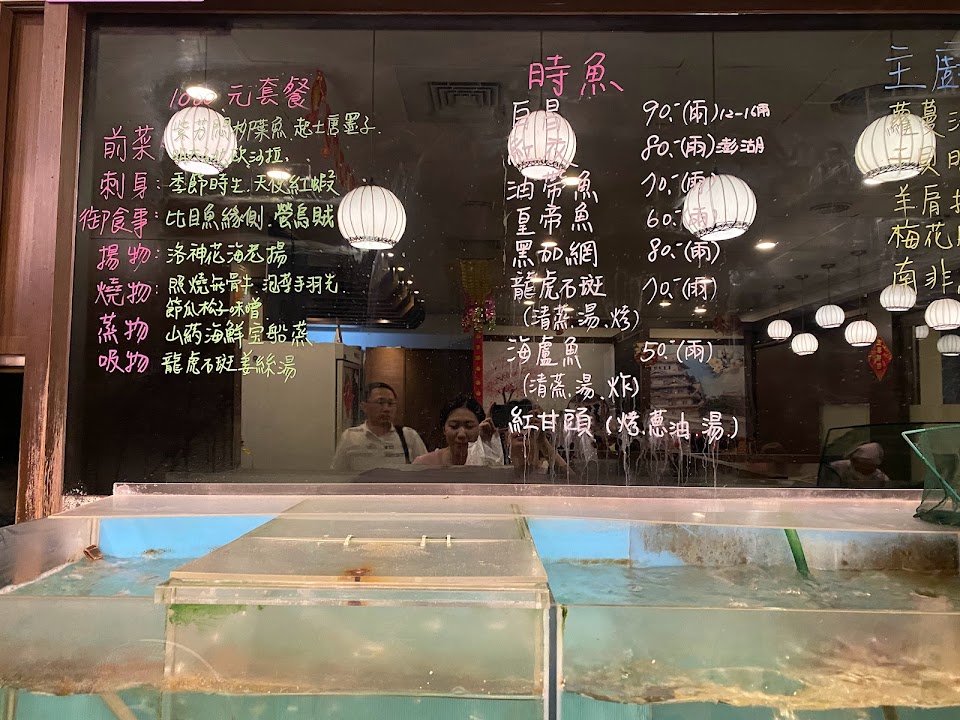 元套餐
前菜
魚 起士唐墨子.
沙拉.
刺身: 季節時生. 天使紅蝦
御食事: 比目魚緣側. 螢烏賊
揚物: 洛神花海老揚
燒物: 照燒無骨牛. 手羽先.
節瓜松子味噌
蒸物 山葯海鮮宝船蒸
吸物 龍虎石斑姜絲湯
時魚
90.-(兩)12-16兩
80.-(兩)澎湖
油帶魚 70.-(兩)
皇帝魚 60.-(兩)
黑加網 80.-(兩)
龍虎石斑 70.-(兩)
(清蒸.湯.烤)
海鱸魚 50.-(兩)
(清蒸.湯.炸)
紅甘頭 (烤.蔥油.湯.)
主廚
蘿蔓
羊肩
梅花
南非